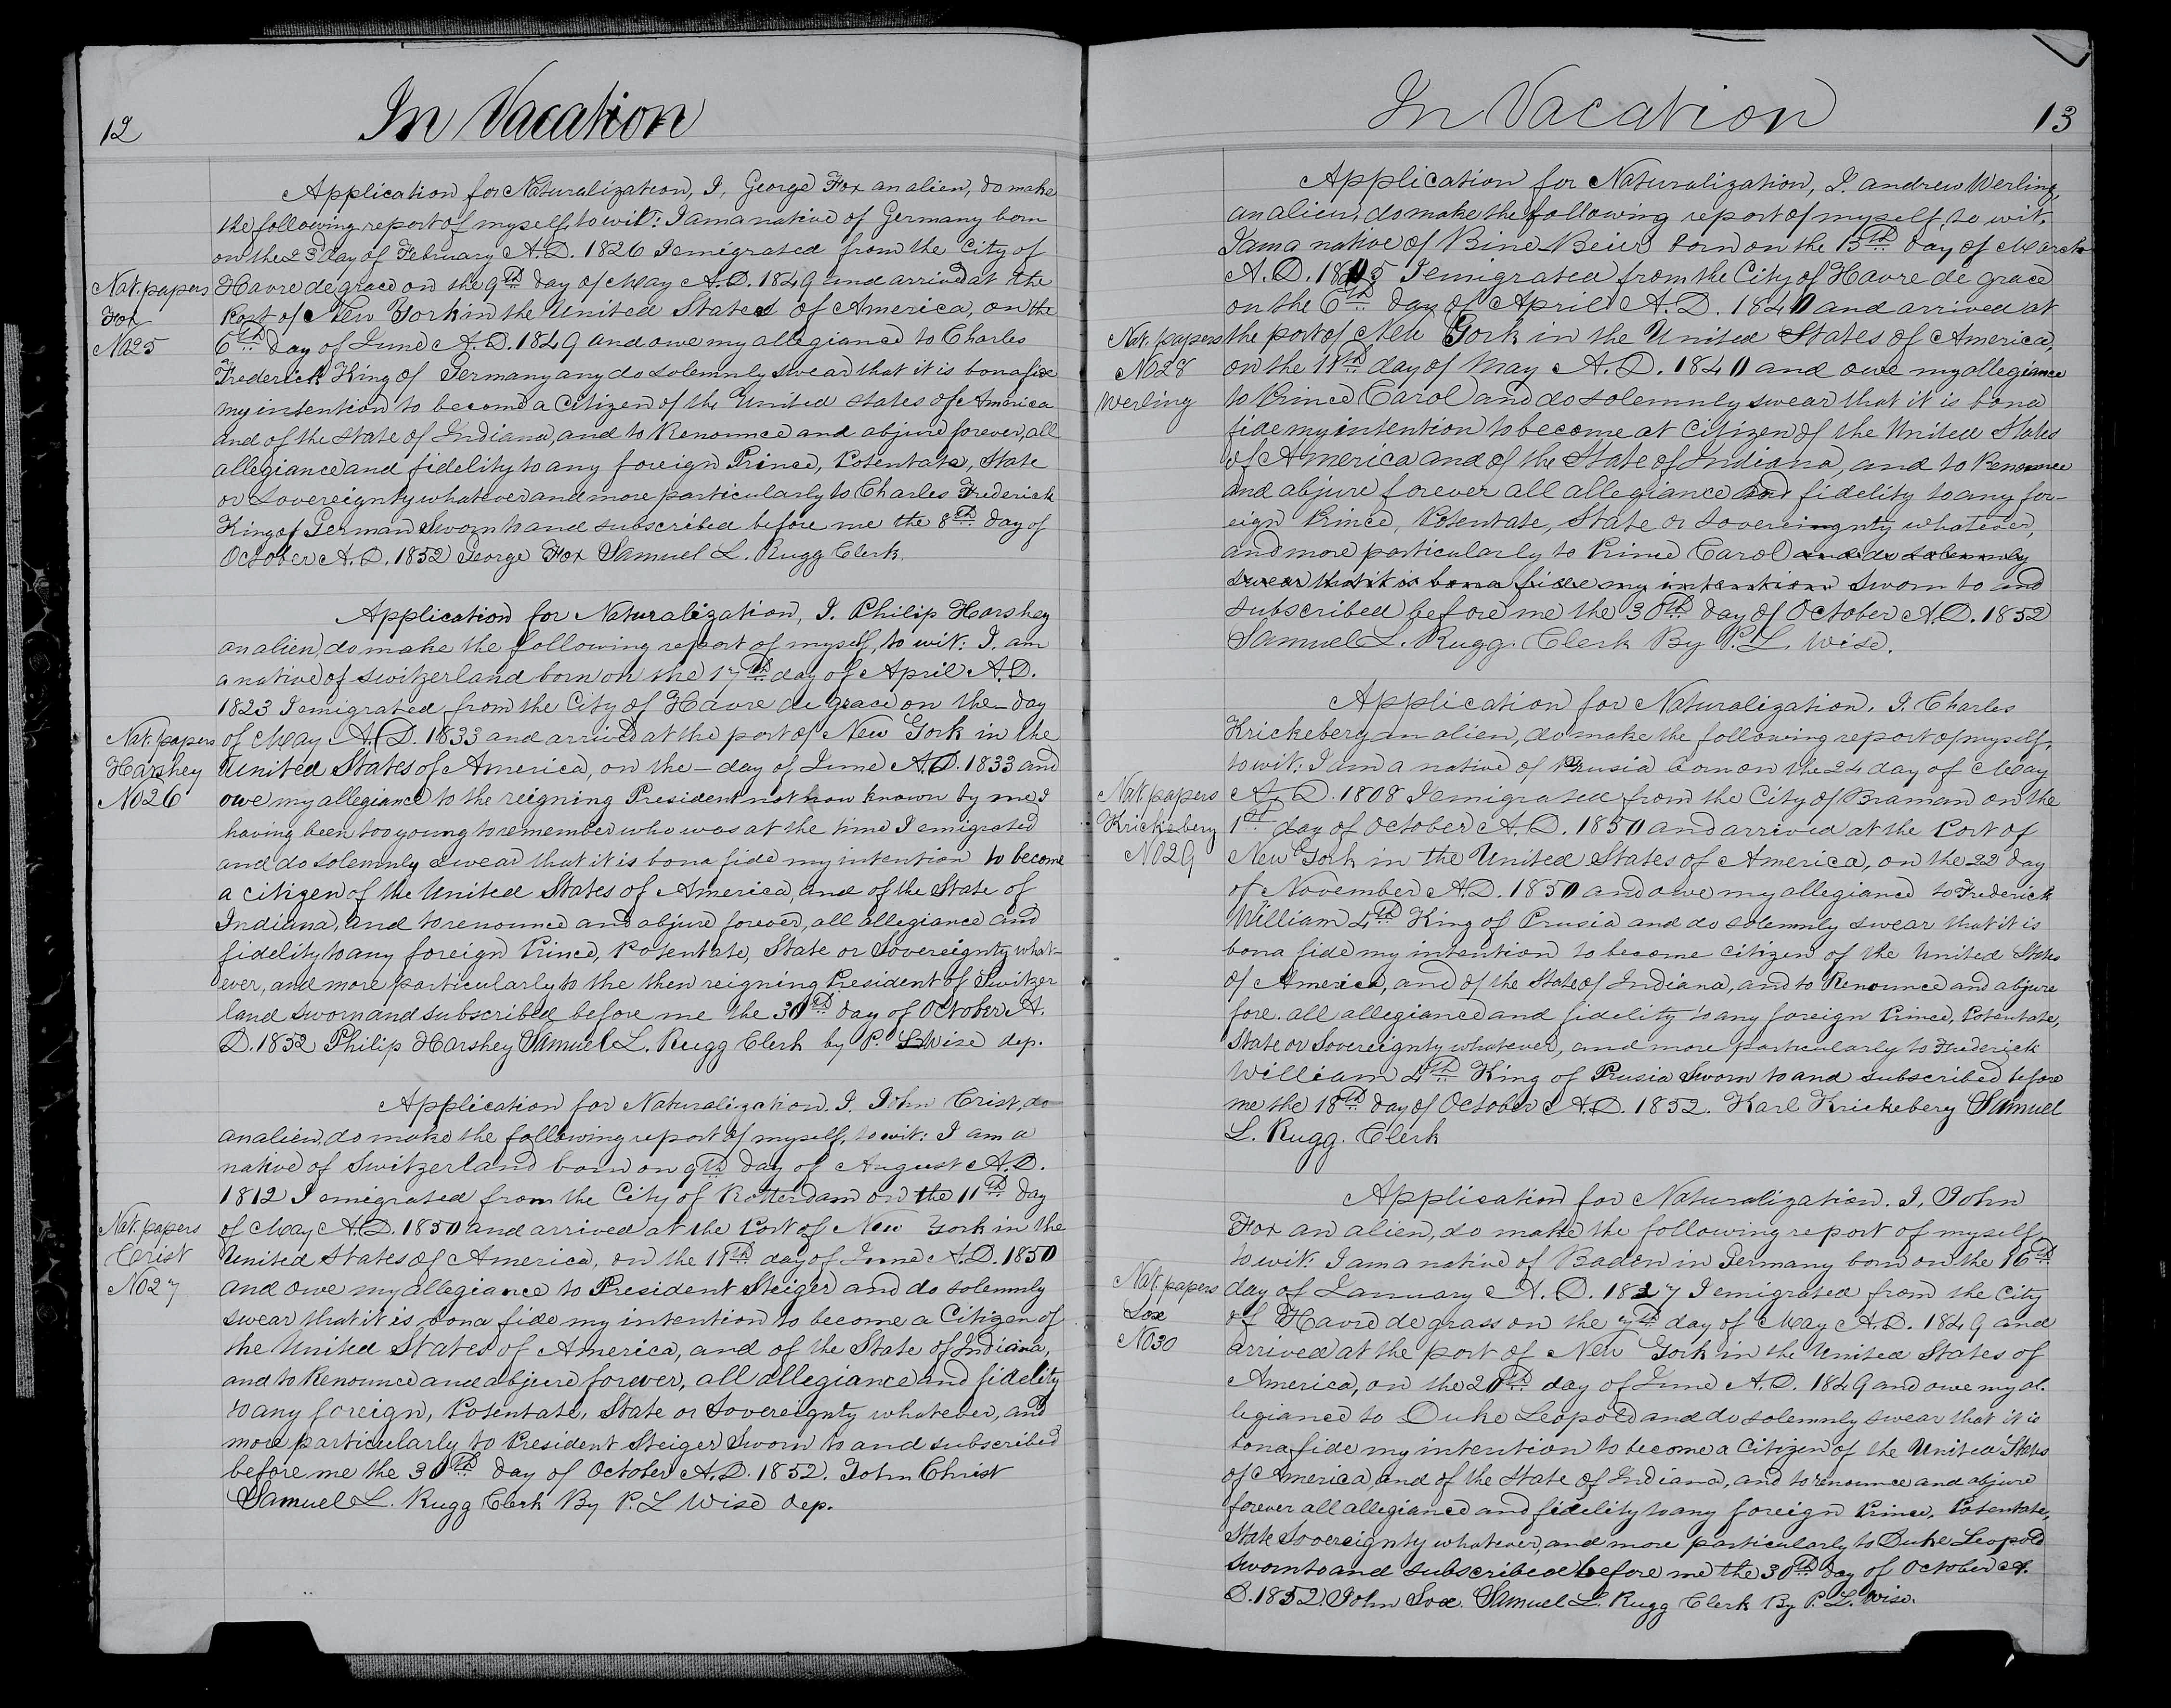 12
In Vacation
Application for Naturalization, I, George Fox an alien, do make
the following report of myself, to wit: I am a native of Germany born
on the 23d day of February A.D. 1826 I emigrated from the City of
Nat. papers
Fox
No 25
Havre de grace on the 9th day of May A.D. 1849 and arrived at the
Port of New York in the United States of America, on the
6th day of June A.D. 1849 and owe my allegiance to Charles
Frederick King of Germany any do solemnly swear that it is bonafide
my intention to become a Citizen of the United States of America
and of the State of Indiana, and to Renounce and abjure forever, all
allegiance and fidelity to any foreign Prince, Potentate, State
or Sovereignty whatever and more particularly to Charles Frederick
King of German Sworn to and subscribed before me the 8th day of
October A.D. 1852 George Fox Samuel L. Rugg Clerk.
Application for Naturalization, I. Philip Harshey
an alien, do make the following report of myself, to wit: I. am
a native of Switzerland born on the 17th day of April A.D.
1823 I emigrated from the City of Havre de grace on the – day
Nat. papers
Harshey
No 26
of May A.D. 1833 and arrived at the port of New York in the
United States of America, on the – day of June A.D. 1833 and
owe my allegiance to the reigning President not now known by me I
having been too young to remember who was at the time I emigrated
and do solemnly swear that it is bona fide my intention to become
a citizen of the United States of America, and of the State of
Indiana, and to renounce and abjure forever, all allegiance and
fidelity to any foreign Prince, Potentate, State or Sovereignty what-
ever, and more particularly to the then reigning President of Switzer
land sworn and subscribed before me the 30th day of October A.
D. 1852 Philip Harshey Samuel L. Rugg Clerk by P. L Wise dep.
Application for Naturalization. I. John Crist, do
an alien, do make the following report of myself, to wit: I am a
native of Switzerland born on 9th day of August A.D.
1812 I emigrated from the City of Rotterdam on the 11th day
Nat. papers
Crist
No 27
of May A.D. 1850 and arrived at the Port of New York in the
United States of America, on the 11th day of June A.D. 1850
and owe my allegiance to President Steiger and do solemnly
swear that it is bona fide my intention to become a Citizen of
the United States of America, and of the State of Indiana,
and to Renounce and abjure forever, all allegiance and fidelity
to any foreign, Potentate, State or Sovereignty whatever, and
more particularly to President Steiger Sworn to and subscribed
before me the 30th day of October A.D. 1852. John Christ
Samuel L. Rugg Clerk By P. L Wise dep.
In Vacation
13
Application for Naturalization, I. andrew Werling,
an alien, do make the following report of myself, to wit,
I am a native of Rine Beier born on the 15th day of March
A.D. 1805 I emigrated from the City of Havre de grace
on the 6th day of April A.D. 1840 and arrived at
Nat. papers
No 28
Werling
the port of New York in the United States of America,
on the 11th day of May A.D. 1840 and owe my allegiance
to Prince Carol and do solemnly swear that it is bona
fide my intention to become at Citizen of the United States
of America and of the State of Indiana, and to Renounce
and abjure forever all allegiance and fidelity to any for-
eign Prince, Potentate, State or Sovereingnty whatever,
and more particularly to Prince Carol and do solemnly
swear that it is bona fide my intention sworn to and
subscribed before me the 30th day of October A.D. 1852
Samuel L. Rugg. Clerk By P. L. Wise.
Application for Naturalization. I. Charles
Krickeberg an alien, do make the following report of myself,
to wit: I am a native of Prusia born on the 24 day of May
Nat. papers
Krickeberg
No 29
A.D. 1808 I emigrated from the City of Braman on the
1st day of October A.D. 1850 and arrived at the Port of
New York in the United States of America, on the 22 day
of November A.D. 1850 and owe my allegiance to Frederick
William 4th King of Prusia and do solemnly swear that it is
bona fide my intention to become citizen of the United States
of America, and of the State of Indiana, and to Renounce and abjure
fore. all allegiance and fidelity to any foreign Prince, Potentate,
State or Sovereignty whatever, and more particularly to Frederick
William 4th King of Prusia Sworn to and subscribed before
me the 18th day of October A.D. 1852. Karl Krickeberg Samuel
L. Rugg. Clerk
Application for Naturalization. I, John
Fox an alien, do make the following report of myself
to wit: I am a native of Baden in Germany born on the 16th
Nat. papers
Sox
No 30
day of January A.D. 1827 I emigrated from the City
of Havre de grass on the 7th day of May A.D. 1849 and
arrived at the port of New York in the United States of
America, on the 20th day of June A.D. 1849 and owe my al-
legiance to Duke Leopold and do solemnly swear that it is
bona fide my intention to become a Citizen of the United States
of America, and of the State of Indiana, and to renounce and abjure
forever all allegiance and fidelity to any foreign Prince, Potentate,
State Sovereignty whatever, and more particularly to Duke Leopold
Sworn to and subscribed before me the 30th day of October A.
D. 1852. John Sox. Samuel L. Rugg Clerk By P. L. Wise.